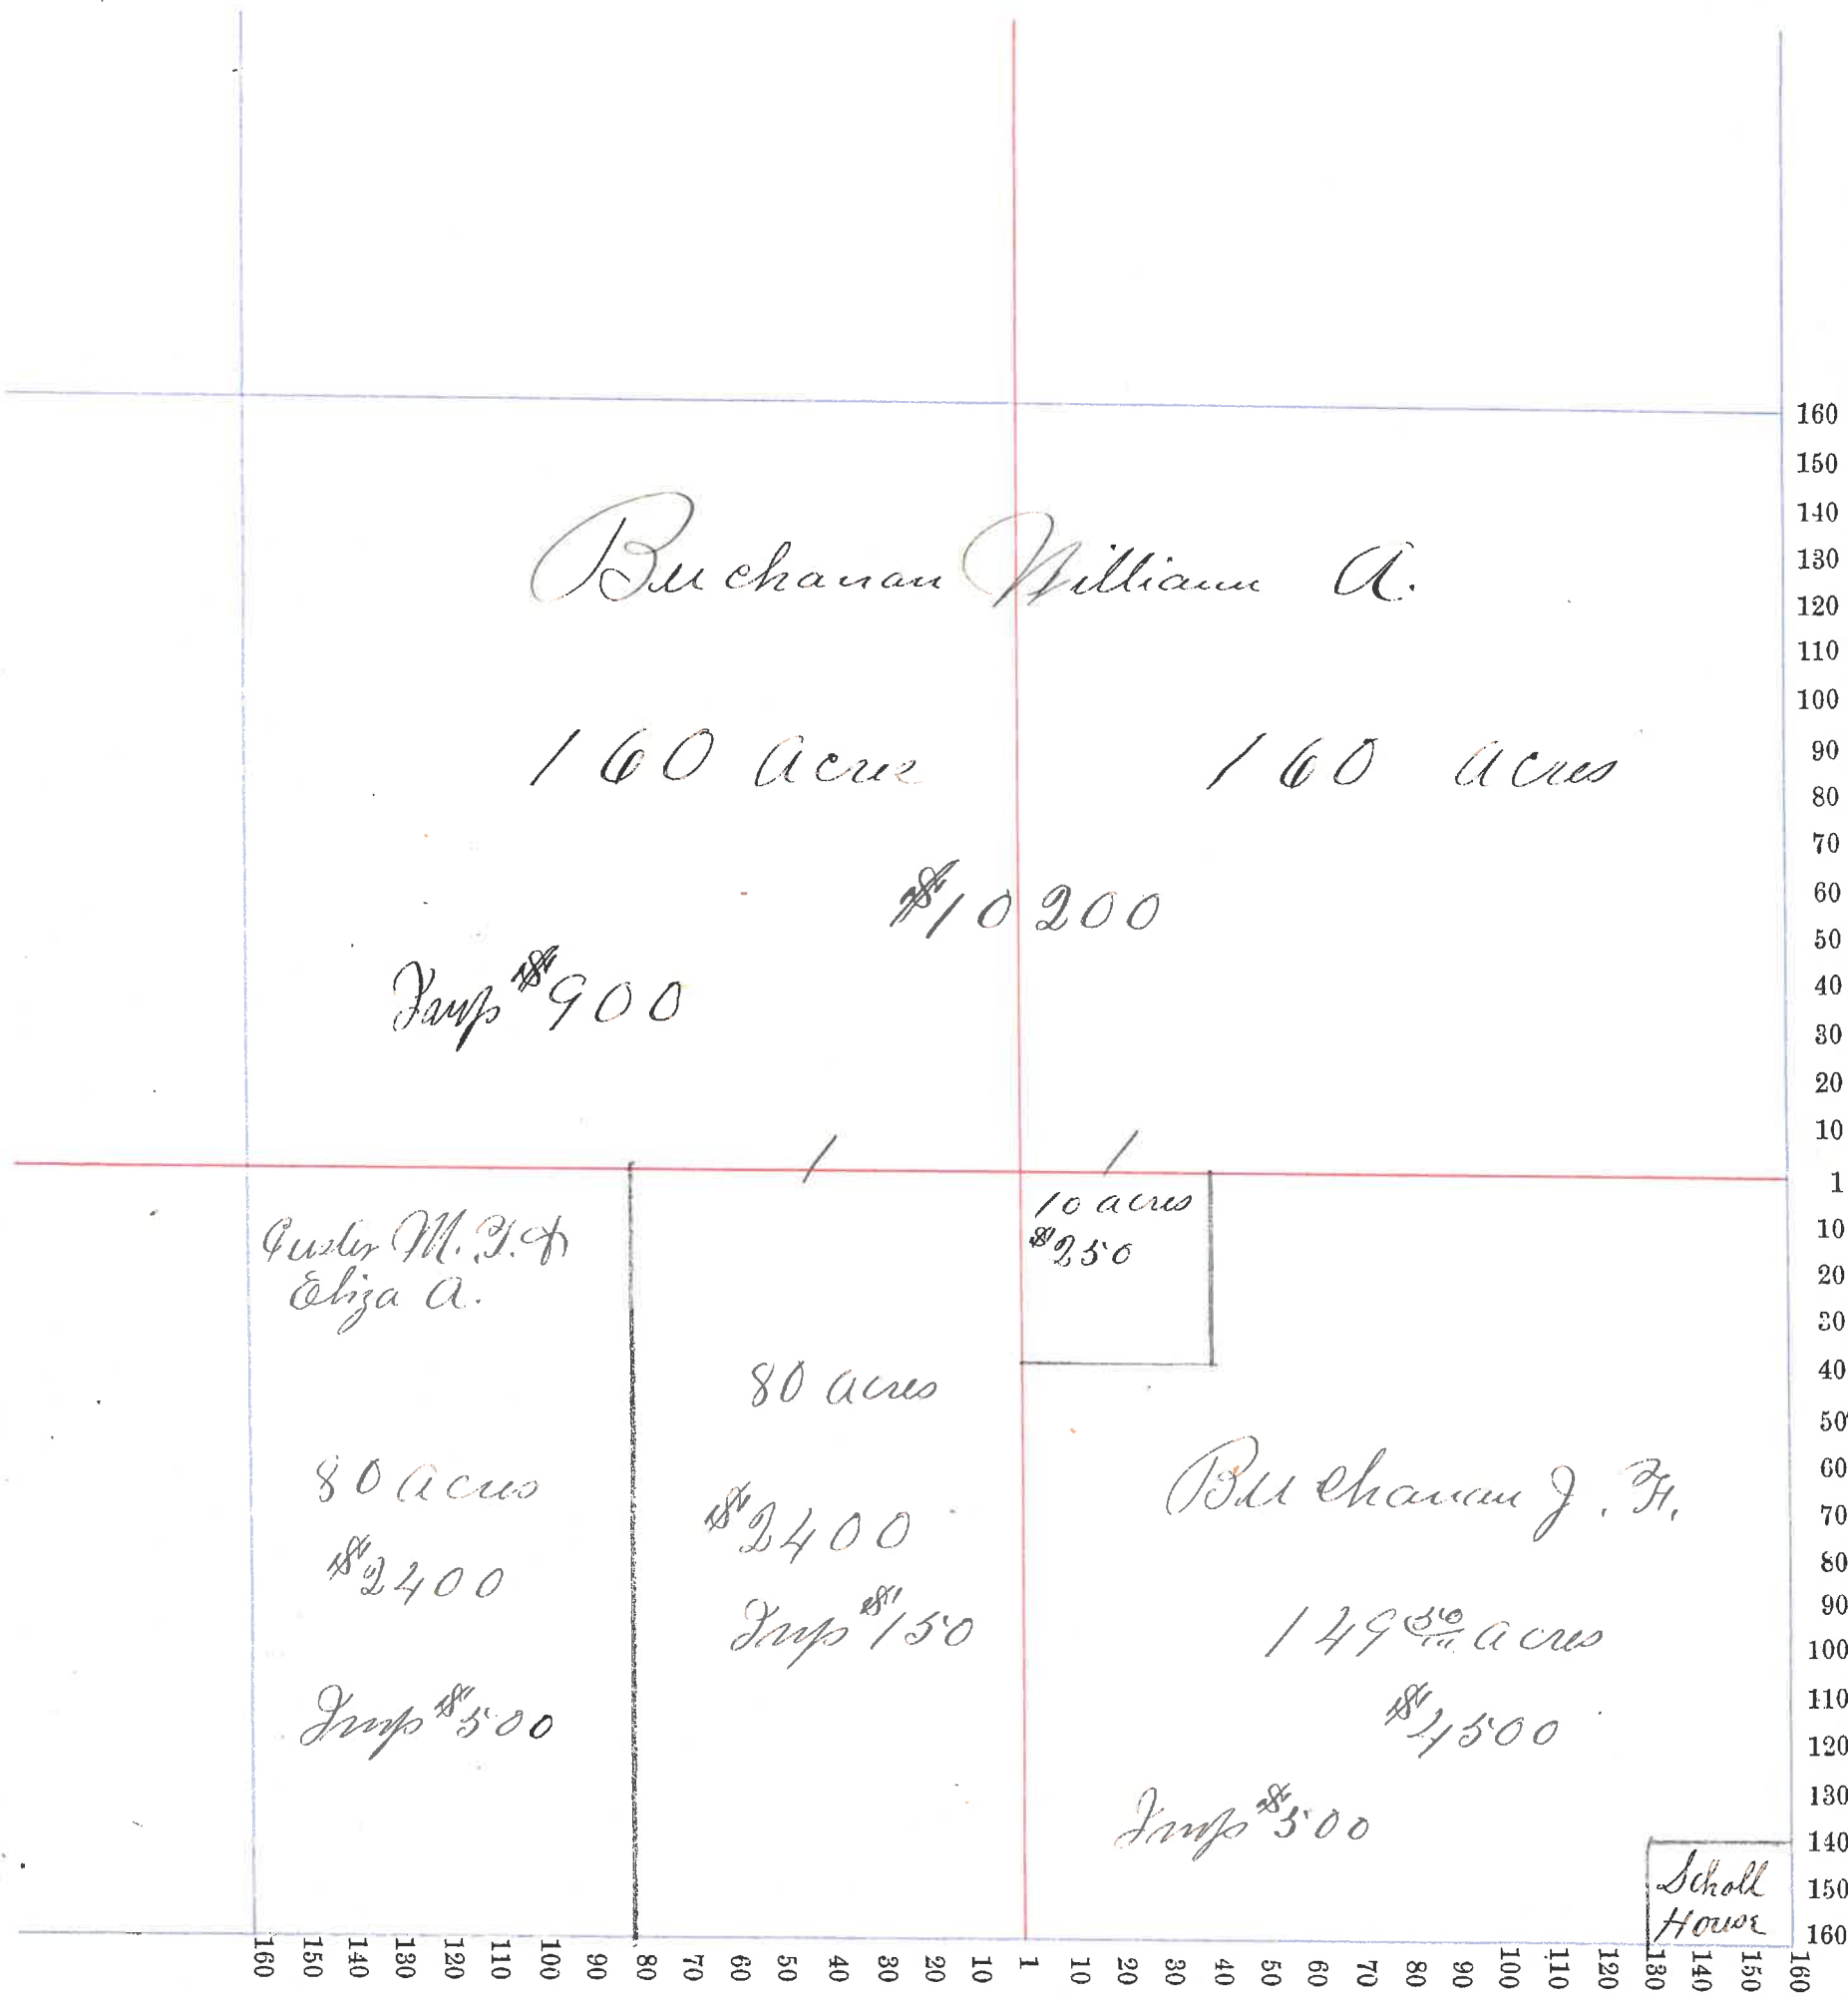 Buchanan William A.
160 acres
160 acres
$10200
Imp $900
10 acres
$250
M. F. &
Eliza A.
80 acres
$2400
Imp $500
80 acres
$2400
Imp $150
Buchanan J. F.
149 50/100 acres
$4500
Imp $500
Scholl
House
160
150
140
130
120
110
100
90
80
70
60
50
40
30
20
10
1
10
20
30
40
50
60
70
80
90
100
110
120
130
140
150
160
160 150 140 130 120 110 100 90 80 70 60 50 40 30 20 10 1 10 20 30 40 50 60 70 80 90 100 110 120 130 140 150 160